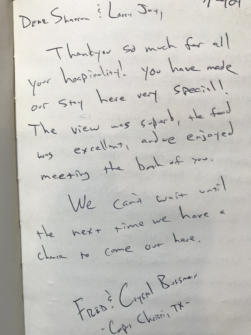 Dear Sharron & Larry Joy,
Thankyou so much for all
your hospitality! you have made
our stay here very special!
The view was superb, the food
was excellent, and we enjoyed
meeting the both of you.
We can't wait until
the next time we have a
chance to come out here.
Fred & Crystal
- Corpus Christi, TX -